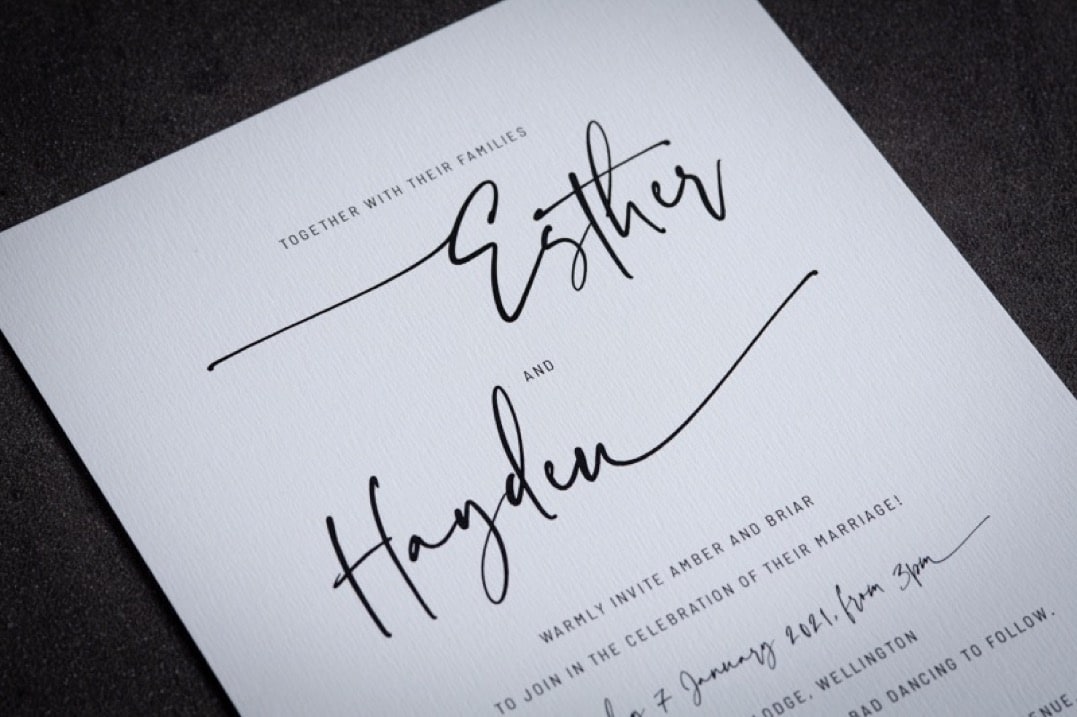 TOGETHER WITH THEIR FAMILIES
Esther
AND
Hayden
WARMLY INVITE AMBER AND BRIAR
TO JOIN IN THE CELEBRATION OF THEIR MARRIAGE!
7 January 2021, from 3pm
LODGE, WELLINGTON
DANCING TO FOLLOW.